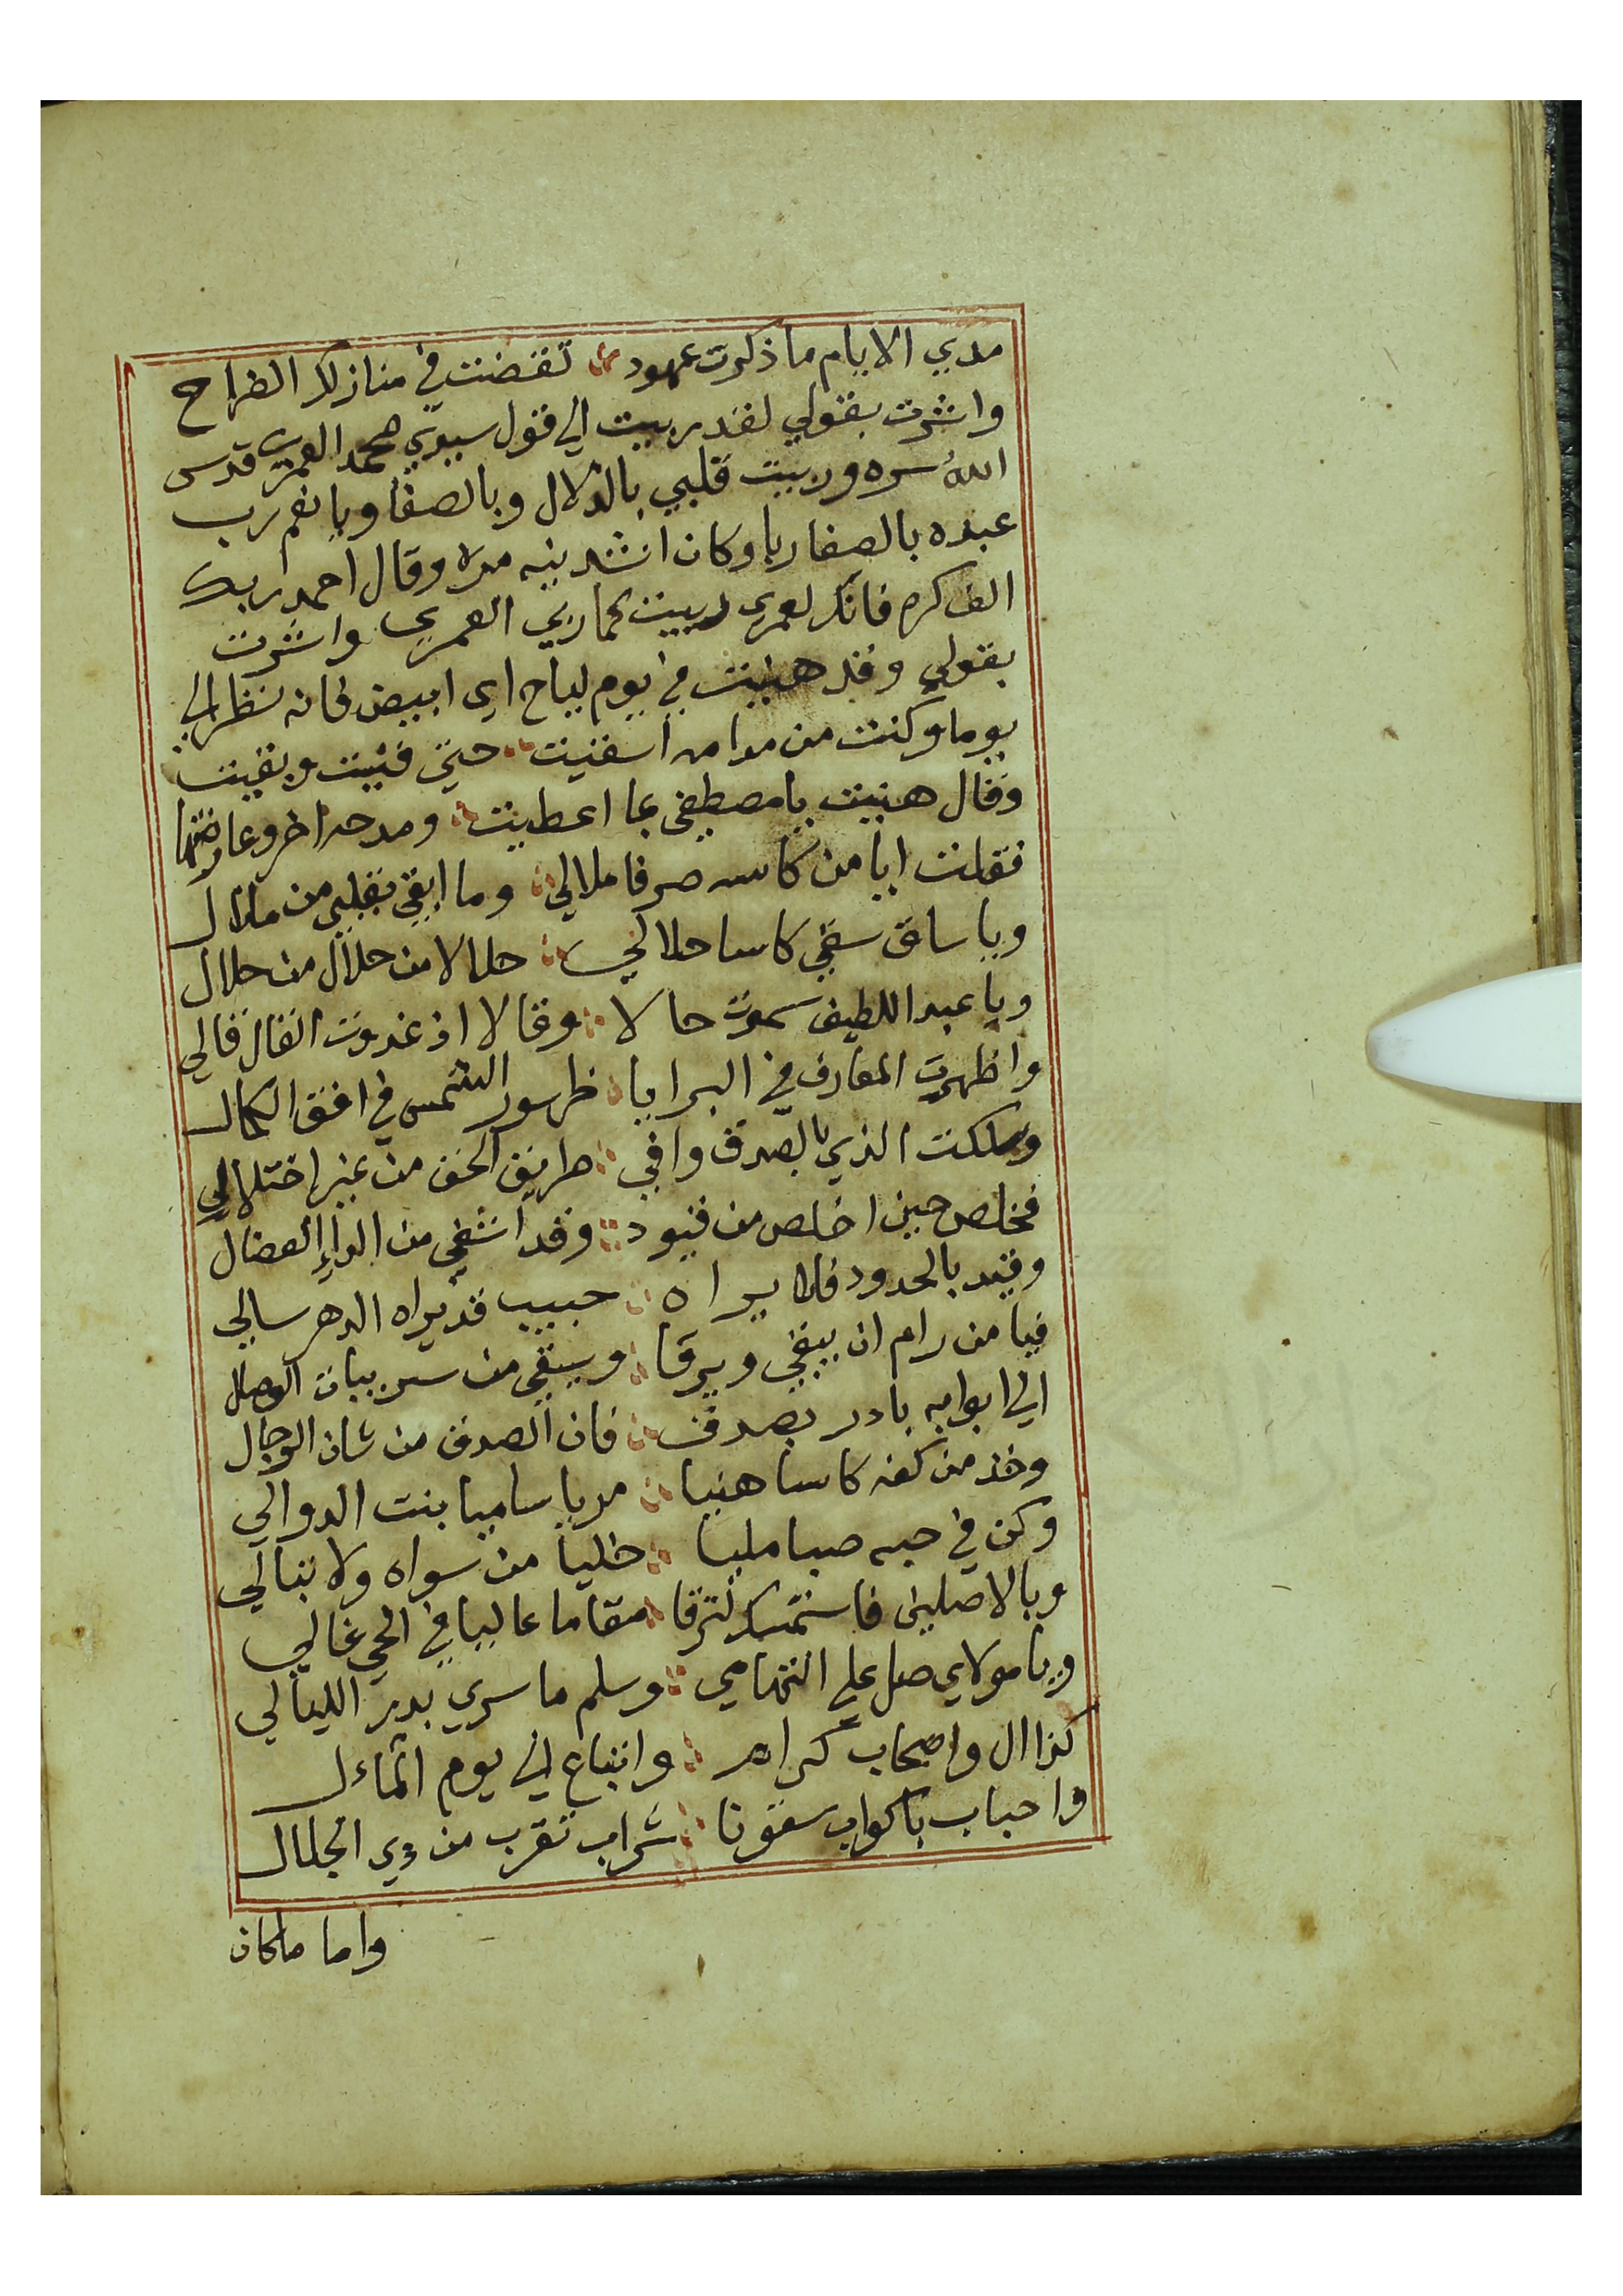 مدي الايام ما ذكرت عهود تقضت في منازلك الطراح
واشرت بقولي لقد ربيت الي قول سيدي محمد العمري قدس
الله سره وربيت قلبي بالدلال وبالصفا ويا نعم رب
عبده بالصفا ربا وكان انشدنيه مرة وقال احمد ربك
الف كرم فانك لعمري ربيت كما ربي العمري واشرت
بقولي وقد هنيت في يوم لياح اي ابيض فانه نظر الي
يوما وكنت من مدامه اسقيت حتي فنيت وبقيت
وقال هنيت يا مصطفي بما اعطيت ومدحه اخر وعارضتها
فقلت ايا من كاسه صرفا ملالي وما ابقي بقلبي من ملال
ويا ساق سقي كاسا حلالي حلالا من حلال من حلال
ويا عبد اللطيف سموت حالا وقالا اذ غدوت القال قالي
واظهرت المعارف في البرايا ظهور الشمس في افق الكمال
وسلكت الذي بالصدق وافي طريق الحق من غير اختلالي
فخلص حين اخلص من قيود وقد اشفي من الداء العضال
وقيد بالحدود فلا يراه حبيب قد يراه الدهر سالي
فيا من رام ان يبقي ويرقا ويسقي من سربيات الوصال
الي ابوابه بادر بصدق فان الصدق من شان الرجال
وخذ من كفه كاسا هنيا مريا ساميا بنت الدوالي
وكن في حبه صبا مليا خليا من سواه ولا تبالي
وبالاصلين فاستمسك لترقا مقاما عاليا في الحي غالي
ويا مولاي صل علي التهامي وسلم ما سري بدر الليالي
كذا ال واصحاب كرام واتباع الي يوم المآل
واحباب باكواب سقونا شراب تقرب من ذي الجلال
واما ما كان